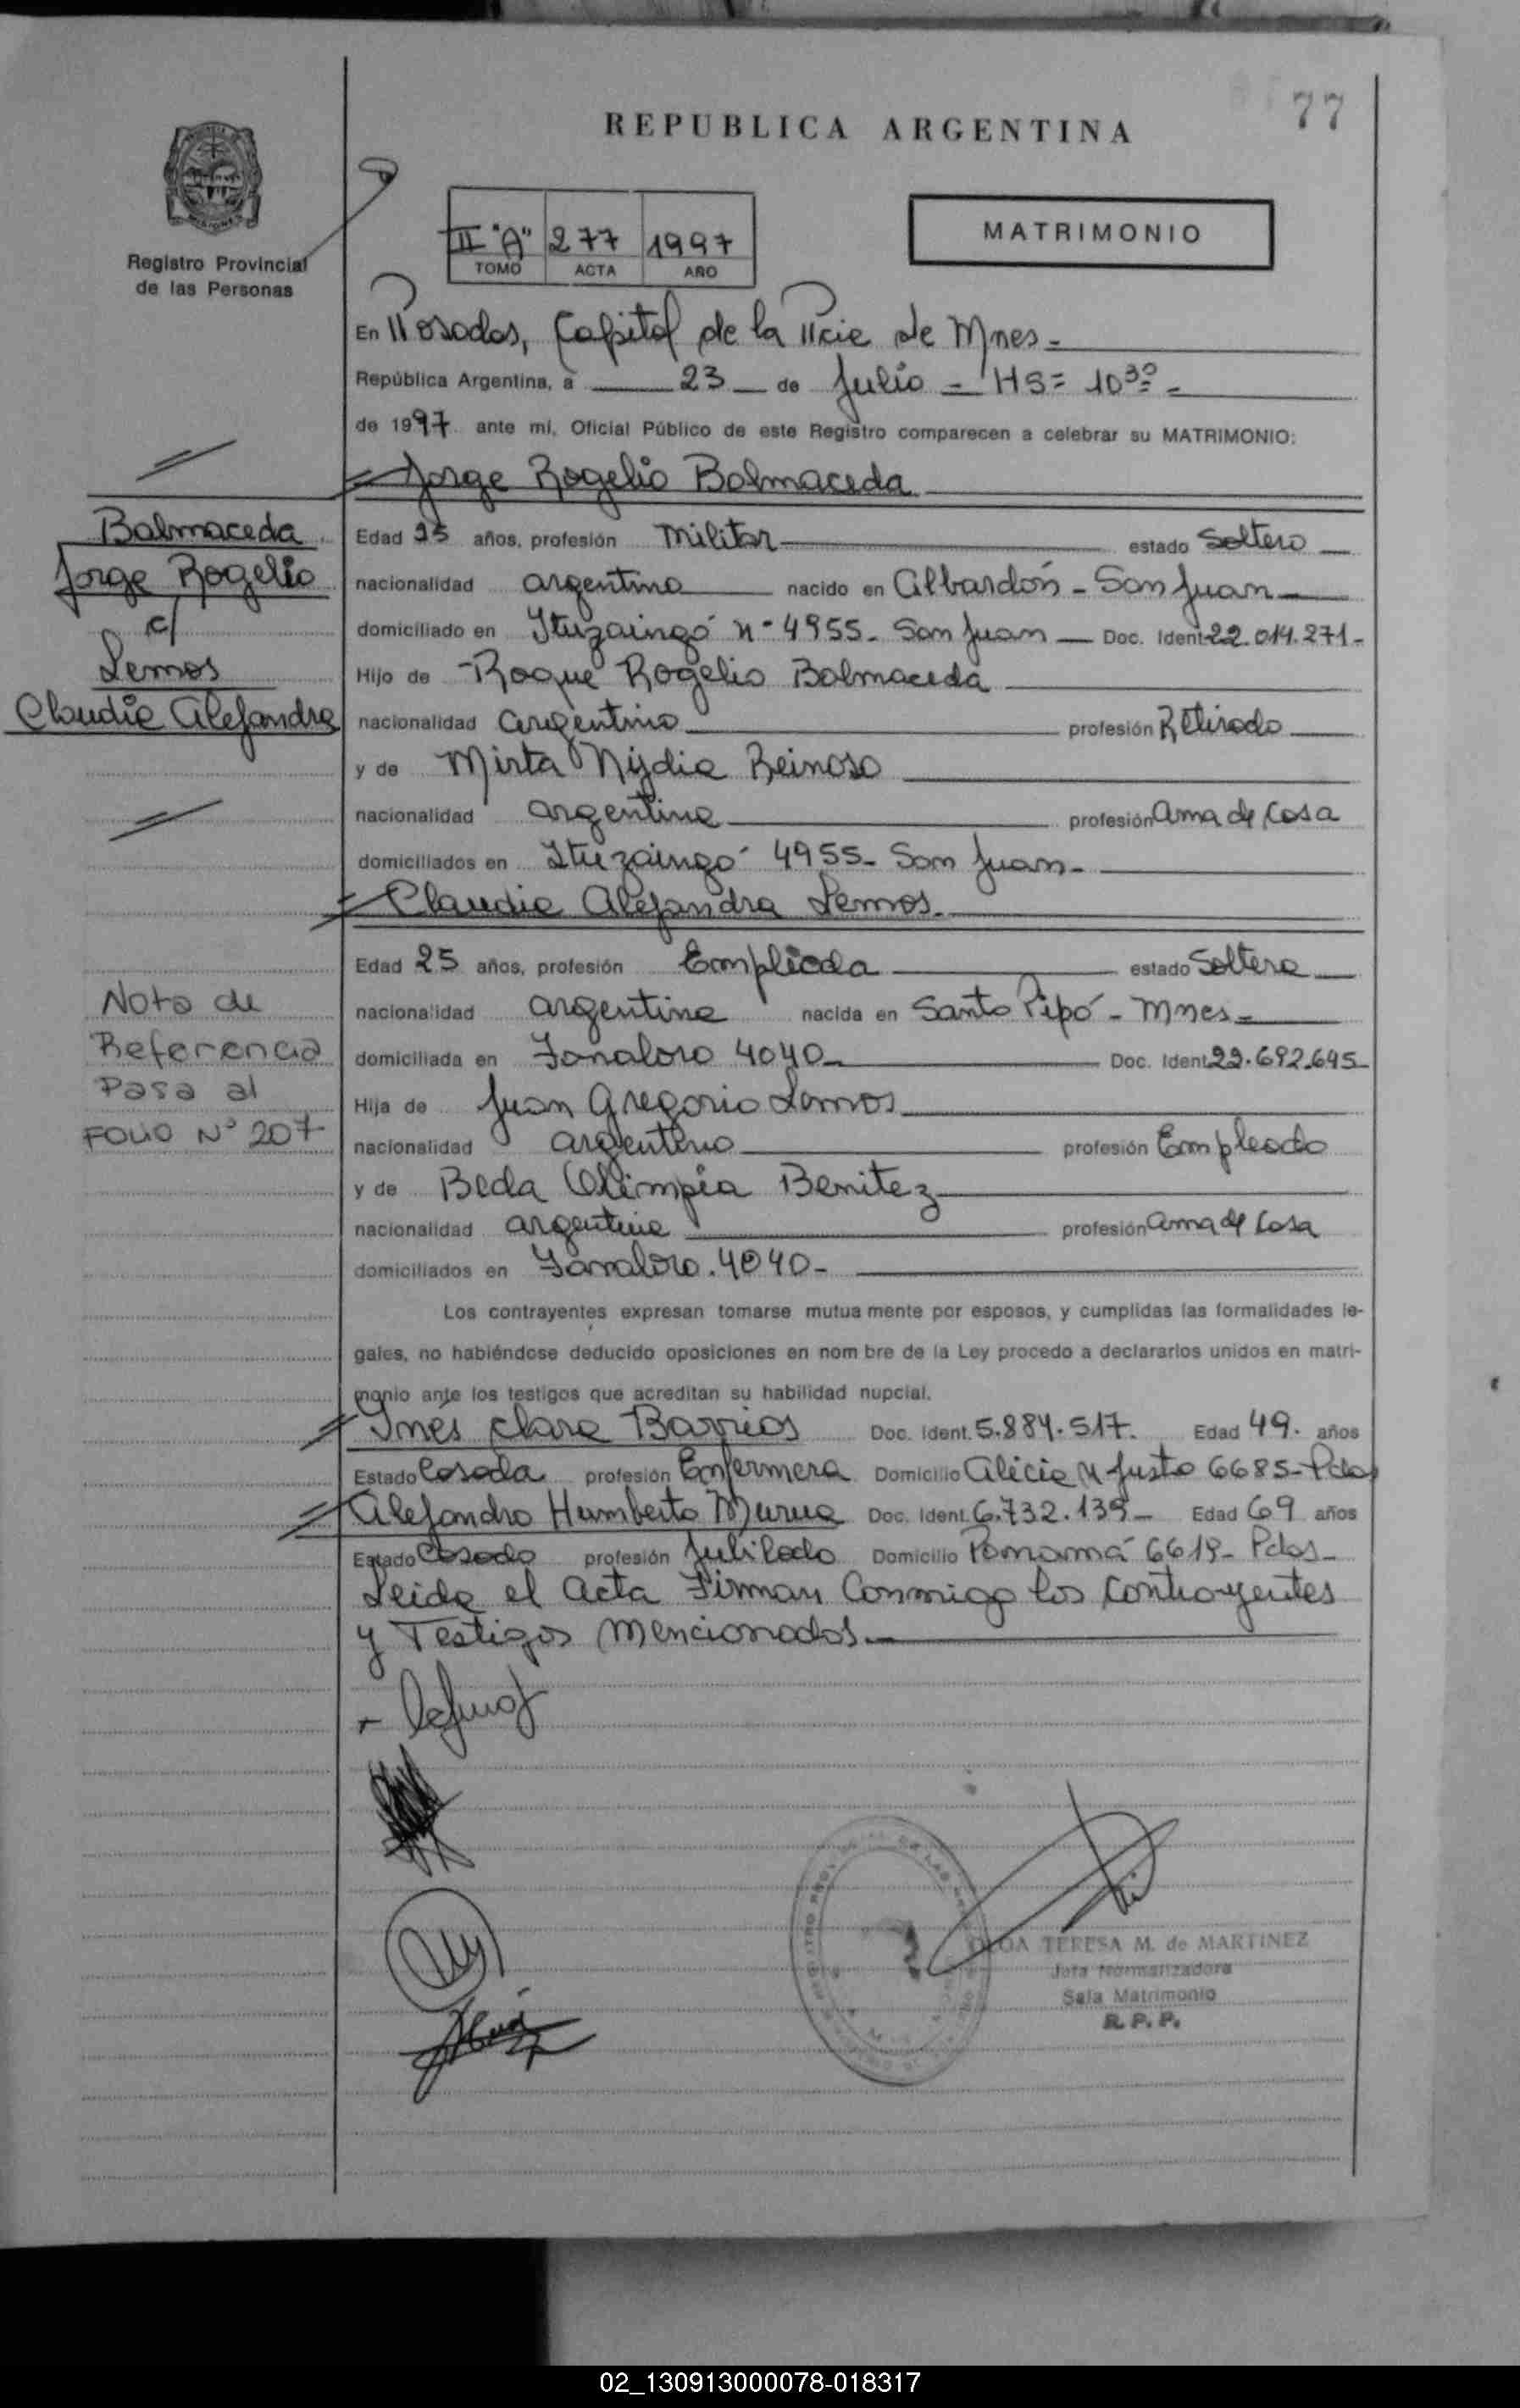 77
REPUBLICA ARGENTINA
MATRIMONIO
II "A" 277 1997
TOMO ACTA AÑO
MISIONES
Registro Provincial
de las Personas
En Posadas, Capital de la Pcie de Mnes.=
República Argentina, a 23 de Julio = HS= 10³⁰=
de 1997 ante mí, Oficial Público de este Registro comparecen a celebrar su MATRIMONIO:
Jorge Rogelio Balmaceda
Balmaceda
Jorge Rogelio
c/
Lemos
Claudia Alejandra
Edad 25 años, profesión Militar estado Soltero
nacionalidad argentina nacido en Albardón - San Juan
domiciliado en Ituzaingó n° 4955- San Juan Doc. Ident. 22.014.271-
Hijo de Roque Rogelio Balmaceda
nacionalidad argentino profesión Retirado
y de Mirta Nydia Reinoso
nacionalidad argentina profesión Ama de Casa
domiciliados en Ituzaingó 4955- San Juan-
Claudia Alejandra Lemos.
Edad 25 años, profesión Empleada estado Soltera
nacionalidad argentina nacida en Santo Pipó - Mnes=
domiciliada en 4040- Doc. Ident. 22.692.645-
Hija de Juan Gregorio Lemos
nacionalidad argentino profesión Empleado
y de Beda Olimpia Benitez
nacionalidad argentina profesión Ama de Casa
domiciliados en 4040-
Nota de
Referencia
Pasa al
FOLIO N° 207
Los contrayentes expresan tomarse mutua mente por esposos, y cumplidas las formalidades le-
gales, no habiéndose deducido oposiciones en nom bre de la Ley procedo a declararlos unidos en matri-
monio ante los testigos que acreditan su habilidad nupcial.
Inés Clara Barrios Doc. Ident. 5.884.517. Edad 49. años
Estado Casada profesión Enfermera Domicilio Alicia M Justo 6685- Pdas
Alejandro Humberto Murua Doc. Ident. 6.732.139- Edad 69 años
Estado Casado profesión Jubilado Domicilio Panamá 6619- Pdas-
Leida el Acta Firman Conmigo los Contrayentes
y Testigos Mencionados.-
TERESA M. de MARTINEZ
Jefa Normalizadora
Sala Matrimonio
R. P. P.
02_130913000078-018317